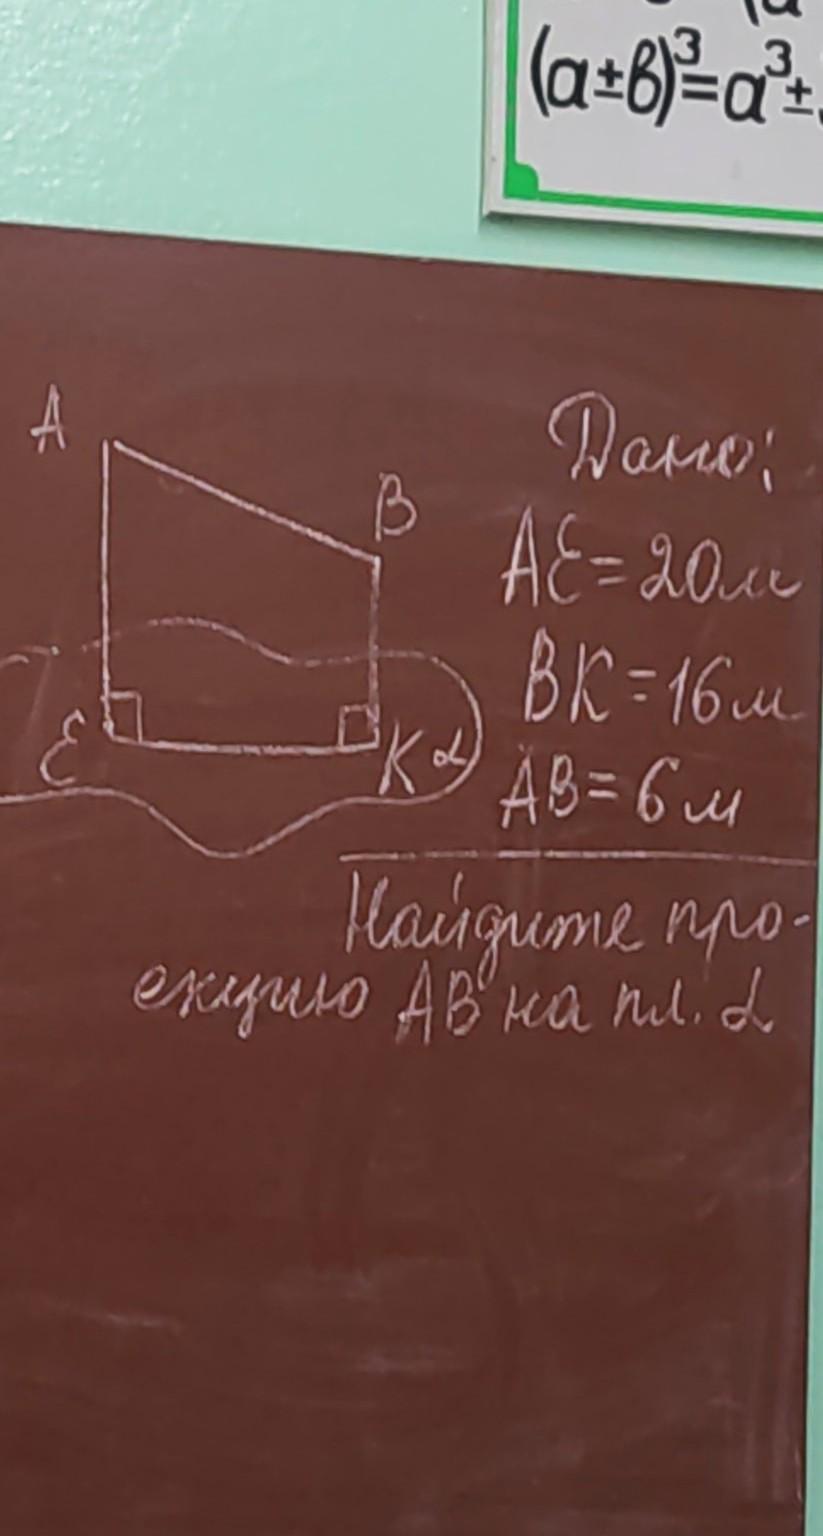 (а±в)³=а³±
А
В
Е
К α
Дано:
АЕ=20м
ВК=16м
АВ=6м
Найдите про-
екцию АВ на пл. α